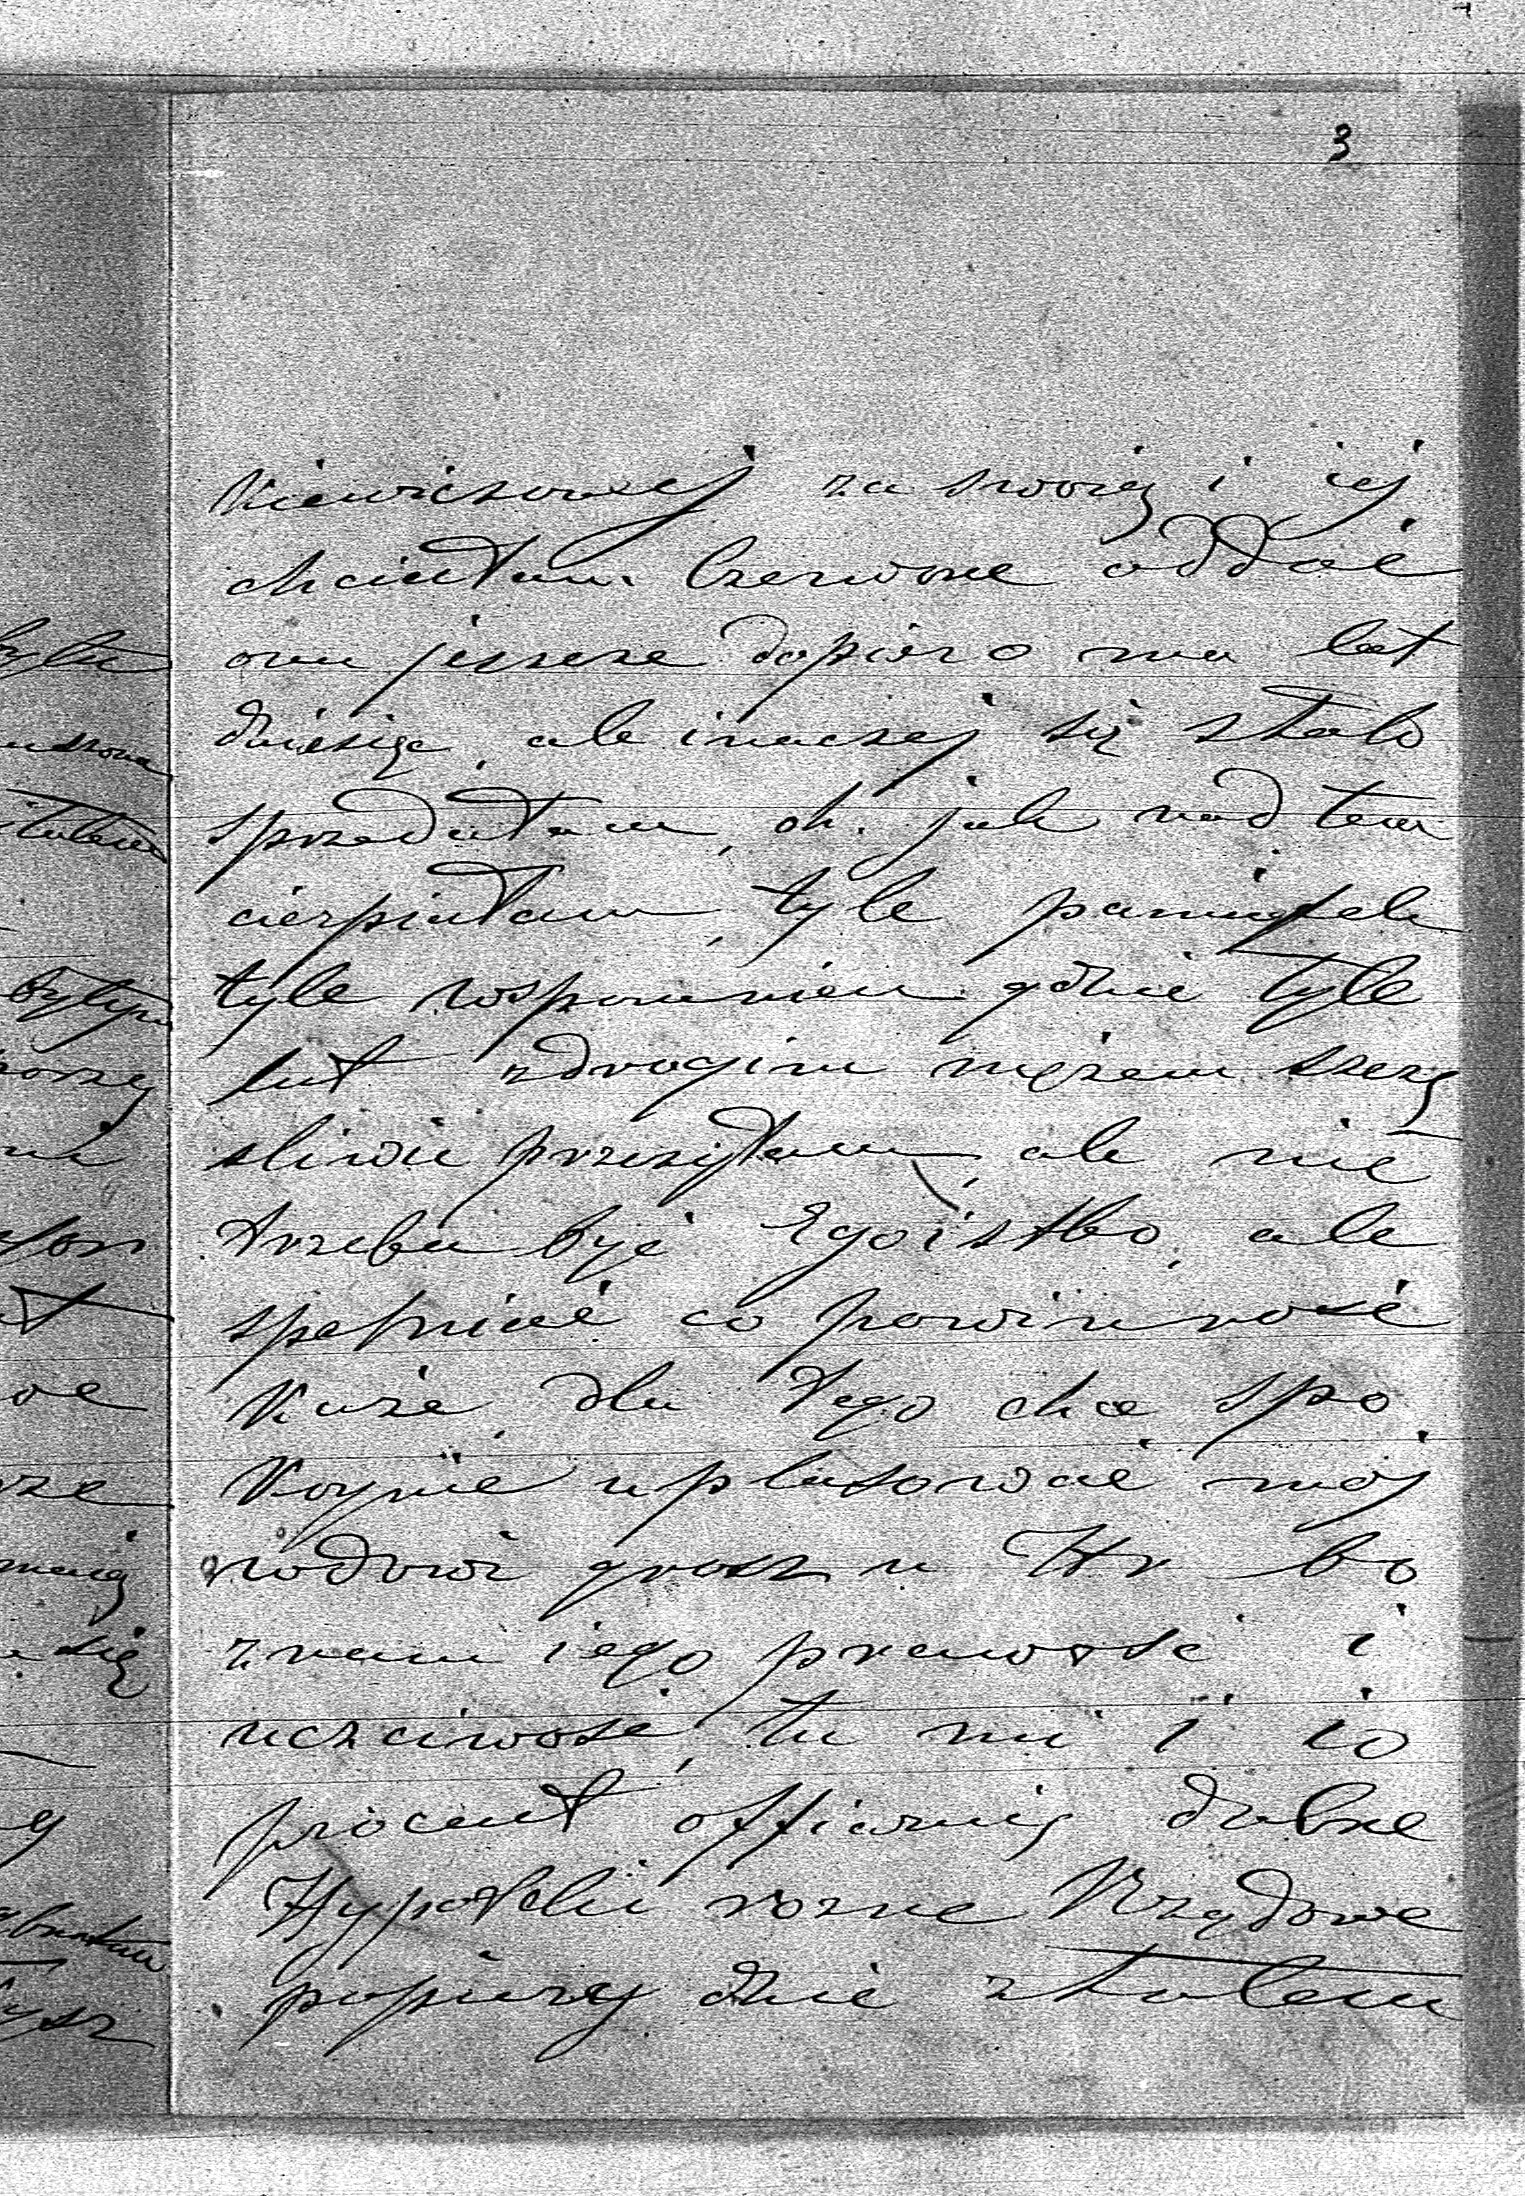 3
kiewiczowej za swoię i iej
chciałam Czerwone oddać
ona jeszcze dopiero ma lat
dziesięć, ale inaczej się stało
sprzedałam, oh. jak nad tem
cierpiałam, tyle pamiątek
tyle wspomnien gdzie tyle
lat zdrogim mężem szczę
sliwie przeżyłam, ale nie
trzeba być Egoistką, ale
spełniać co powinność
Każe, dla tego chcę spo
Kojnie uplasować mój
wdowi grosz u Hr bo
znam iego prawość i
uczciwość, tu mi i 10
procent offiarują dobre
Hypoteki rozne Rządowe
papiery dziś